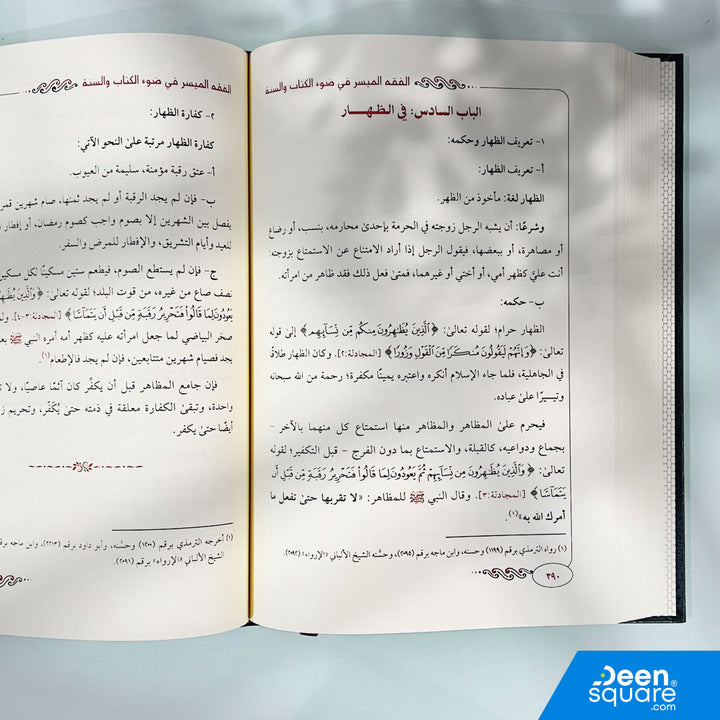 الفقه الميسر في ضوء الكتاب والسنة
الباب السادس: في الظهــار
١- تعريف الظهار وحكمه:
أ- تعريف الظهار:
الظهار لغة: مأخوذ من الظهر.
وشرعًا: أن يشبه الرجل زوجته في الحرمة بإحدىٰ محارمه، بنسب، أو رضاع
أو مصاهرة، أو ببعضها، فيقول الرجل إذا أراد الامتناع عن الاستمتاع بزوجته:
أنت عليَّ كظهر أمي، أو أختي أو غيرهما، فمتىٰ فعل ذلك فقد ظاهر من امرأته.
ب- حكمه:
الظهار حرام؛ لقوله تعالىٰ: ﴿ٱلَّذِينَ يُظَٰهِرُونَ مِنكُم مِّن نِّسَآئِهِم﴾ إلىٰ قوله
تعالىٰ: ﴿وَإِنَّهُمْ لَيَقُولُونَ مُنكَرًا مِّنَ ٱلْقَوْلِ وَزُورًا﴾ [المجادلة:٢]. وكان الظهار طلاقًا
في الجاهلية، فلما جاء الإسلام أنكره واعتبره يمينًا مكفرة؛ رحمة من الله سبحانه
وتيسيرًا علىٰ عباده.
فيحرم علىٰ المظاهر والمظاهر منها استمتاع كل منهما بالآخر -
بجماع ودواعيه، كالقبلة، والاستمتاع بما دون الفرج - قبل التكفير؛ لقوله
تعالىٰ: ﴿وَٱلَّذِينَ يُظَٰهِرُونَ مِن نِّسَآئِهِمْ ثُمَّ يَعُودُونَ لِمَا قَالُوا۟ فَتَحْرِيرُ رَقَبَةٍ مِّن قَبْلِ أَن
يَتَمَآسَّا﴾ [المجادلة:٣]. وقال النبي ﷺ للمظاهر: «لا تقربها حتىٰ تفعل ما
أمرك الله به»(١).
(١) رواه الترمذي برقم (١١٩٩) وحسنه، وابن ماجه برقم (٢٠٩٥)، وحسَّنه الشيخ الألباني «الإرواء» (٢٠٩٢).
٣٩٠
الفقه الميسر في ضوء الكتاب والسنة
٢- كفارة الظهار:
كفارة الظهار مرتبة علىٰ النحو الآتي:
أ- عتق رقبة مؤمنة، سليمة من العيوب.
ب- فإن لم يجد الرقبة أو لم يجد ثمنها، صام شهرين
يفصل بين الشهرين إلا بصوم واجب كصوم رمضان، أو إفطار
للعيد وأيام التشريق، والإفطار للمرض والسفر.
ج- فإن لم يستطع الصوم، فيطعم ستين مسكينًا لكل مسكين
نصف صاع من غيره، من قوت البلد؛ لقوله تعالىٰ: ﴿وَٱلَّذِينَ
يَعُودُونَ لِمَا قَالُوا۟ فَتَحْرِيرُ رَقَبَةٍ مِّن قَبْلِ أَن يَتَمَآسَّا﴾ [المجادلة:٣-٤].
صخر البياضي لما جعل امرأته عليه كظهر أمه أمره النبي ﷺ
يجد فصيام شهرين متتابعين، فإن لم يجد فالإطعام(١).
فإن جامع المظاهر قبل أن يكفِّر كان آثمًا عاصيًا، ولا
واحدة، وتبقىٰ الكفارة معلقة في ذمته حتىٰ يُكَفِّر، وتحريم
أيضًا حتىٰ يكفر.
(١) أخرجه الترمذي برقم (١٢٠٠) وحسَّنه، وأبو داود برقم (٢٢١٣)، وابن ماجه
الشيخ الألباني «الإرواء» برقم (٢٠٩١).
Deen
square
.com